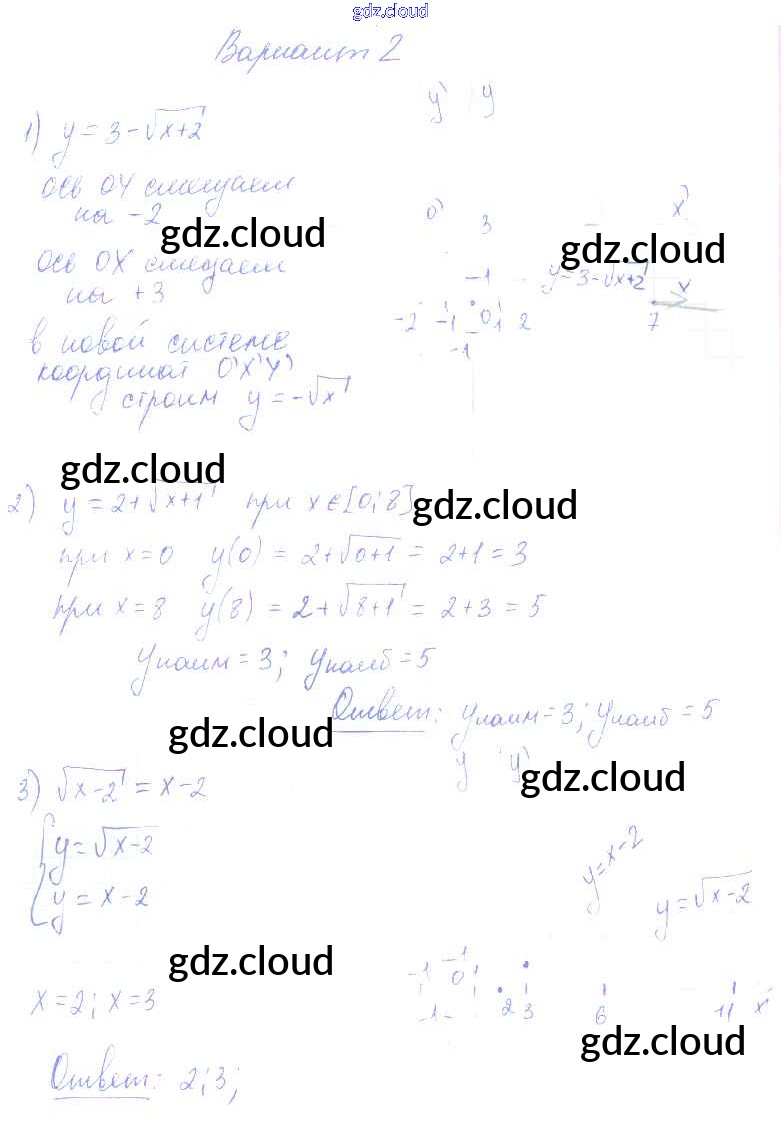 gdz.cloud
Вариант 2
1) y = 3 - √x+2
y' y
ось OY смещаем
на -2
gdz.cloud
ось OX смещаем
на +3
O' 3 x'
gdz.cloud
-1 y=3-√x+2 x
-2 -1 0 1 2 7
-1
в новой системе
координат O'X'Y'
строим y = -√x
gdz.cloud
2) y = 2+√x+1 при x∈[0;8]
gdz.cloud
при x=0 y(0) = 2+√0+1 = 2+1 = 3
при x=8 y(8) = 2+√8+1 = 2+3 = 5
yнаим = 3; yнаиб = 5
Ответ: yнаим = 3; yнаиб = 5
gdz.cloud
y y'
gdz.cloud
3) √x-2 = x-2
y = √x-2
y = x-2
y=x-2
y=√x-2
gdz.cloud
-1 -1 0 1
-1 2 3 6 11 x'
x=2; x=3
gdz.cloud
Ответ: 2; 3;